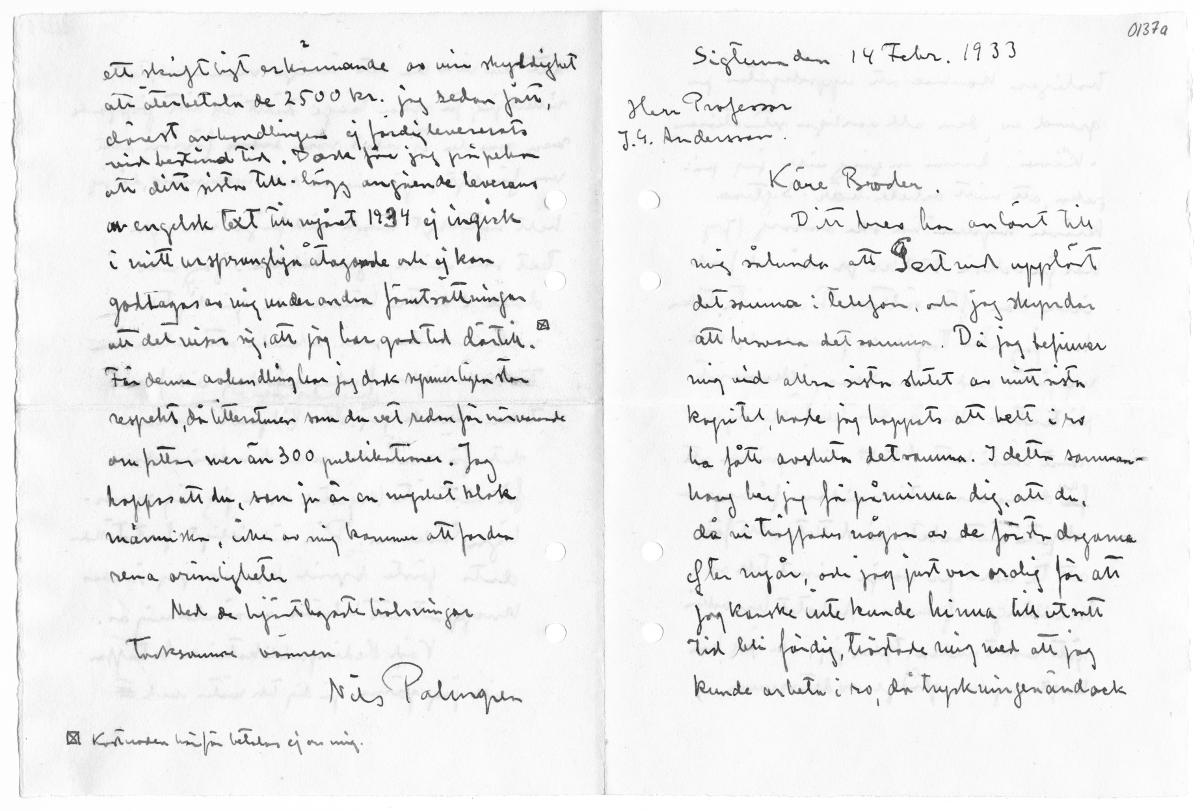 0137a
Sigtuna den 14 Febr. 1933
Herr Professor
J.G. Andersson.
Käre Broder.
Ditt brev har anlänt till
mig sålunda att Gertrud uppläst
detsamma i telefon, och jag skyndar
att besvara detsamma. Då jag befinner
mig vid allra sista slutet av mitt sista
kapitel, hade jag hoppats att helt i ro
ha fått avsluta detsamma. I detta samman-
hang ber jag få påminna dig, att du,
då vi träffades någon av de första dagarna
efter nyår, och jag just var orolig för att
jag kanske inte kunde hinna till utsatt
tid bli färdig, tröstade mig med att jag
kunde arbeta i ro, då tryckningen ändock
ett skriftligt erkännande av min skyldighet
att återbetala de 2500 kr. jag sedan fått,
därest avhandlingen ej färdiglevererats
vid bestämd tid. Dock får jag påpeka
att ditt sista tillägg angående leverans
av engelsk text till nyåret 1934 ej ingick
i mitt ursprungliga åtagande och ej kan
godtagas av mig under andra förutsättningar
än att det visar sig, att jag har god tid därtill. ☒
För denna avhandling har jag dock synnerligen stor
respekt, då litteraturen som du vet redan för närvarande
omfattar mer än 300 publikationer. Jag
hoppas att du, som ju är en mycket klok
människa, icke av mig kommer att fordra
rena orimligheter
Med de hjärtligaste hälsningar
tacksamme vännen
Nils Palmgren
☒ Kostnaden härför betalas ej av mig.